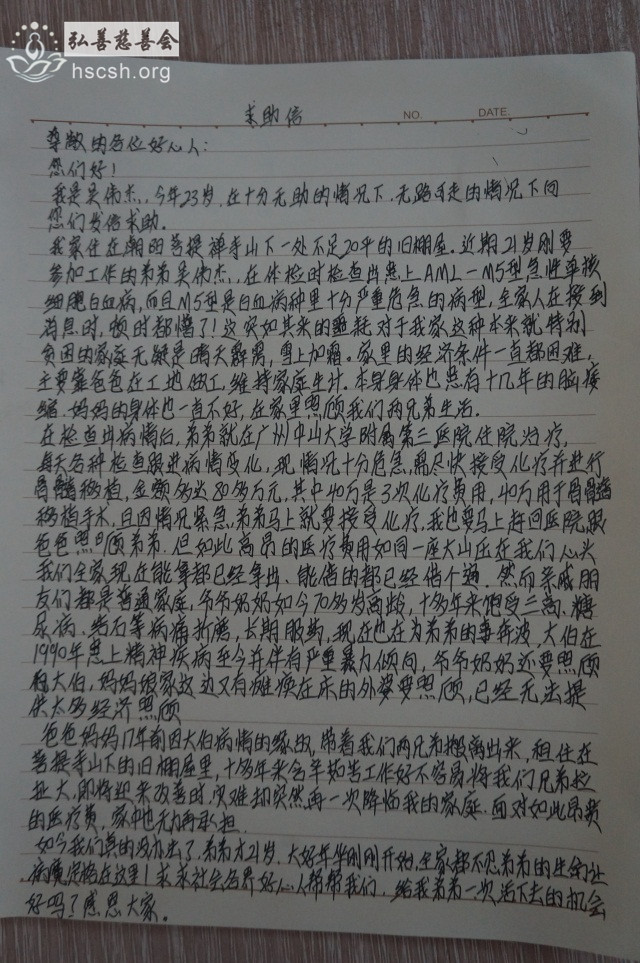 弘善慈善会
hscsh.org
求助信
NO. DATE.
尊敬的各位好心人：
您们好！
我是吴伟杰，今年23岁，在十分无助的情况下，无路可走的情况下向
您们发信求助。
我家住在潮阳菩提禅寺山下一处不足20平的旧棚屋。近期21岁刚要
参加工作的弟弟吴伟杰，在体检时检查出患上AML-M5型急性单核
细胞白血病，而且M5型是白血病种里十分严重危急的病型，全家人在接到
消息时，顿时都懵了！这突如其来的噩耗对于我家这种本来就特别
贫困的家庭无疑是晴天霹雳，雪上加霜。家里的经济条件一直都困难，
主要靠爸爸在工地做工，维持家庭生计。本身身体也患有十几年的脑
缩。妈妈的身体也一直不好，在家里照顾我们两兄弟生活。
在检查出病情后，弟弟就在广州中山大学附属第三医院住院治疗，
每天各种检查跟进病情变化，现情况十分危急，需尽快接受化疗并进行
骨髓移植，金额多达80多万元，其中40万是3次化疗费用，40万用于骨髓
移植手术，且因情况紧急，弟弟马上就要接受化疗，我也要马上赶回医院跟
爸爸照顾弟弟。但如此高昂的医疗费用如同一座大山压在我们心头
我们全家现在能拿都已经拿出、能借的都已经借个遍。然而亲戚朋
友们都是普通家庭，爷爷奶奶如今70多岁高龄，十多年来饱受三高、糖
尿病、结石等病痛折磨，长期服药，现在也在为弟弟的事奔波，大伯在
1990年患上精神疾病至今并伴有严重暴力倾向，爷爷奶奶还要照顾
大伯，妈妈娘家这边又有瘫痪在床的外婆要照顾，已经无法提
供太多经济照顾
爸爸妈妈17年前因大伯病情的缘由，带着我们两兄弟搬离出来，租住在
菩提寺山下的旧棚屋里，十多年来含辛如苦工作好不容易将我们兄弟拉
扯大，即将迎来改善时，灾难却突然再一次降临我的家庭。面对如此昂贵
的医疗费，家中也无力再承担。
如今我们真的没办法了，弟弟才21岁，大好年华刚刚开始，全家都不忍弟弟的生命让
病魔定格在这里！求求社会各界好心人帮帮我们，给我弟弟一次活下去的机会
好吗？感恩大家。